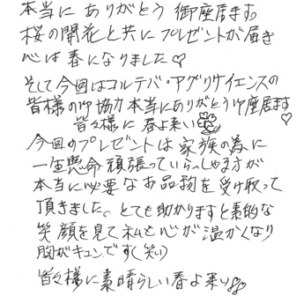 本当に ありがとう 御座居ます
桜の開花と共に プレゼントが届き
心は 春になりました♡
そして今回はコルテバ・アグリサイエンスの
皆様の御協力本当にありがとう御座居ます
皆々様に 春よ来い
今回のプレゼントは 家族の為に
一生懸命 頑張っていらっしゃる方が
本当に必要なお品物を受け取って
頂きました。とても助かりますと素的な
笑顔を見て私も心が温かくなり
胸がキュンです(笑)
皆々様に素晴らしい春よ来い